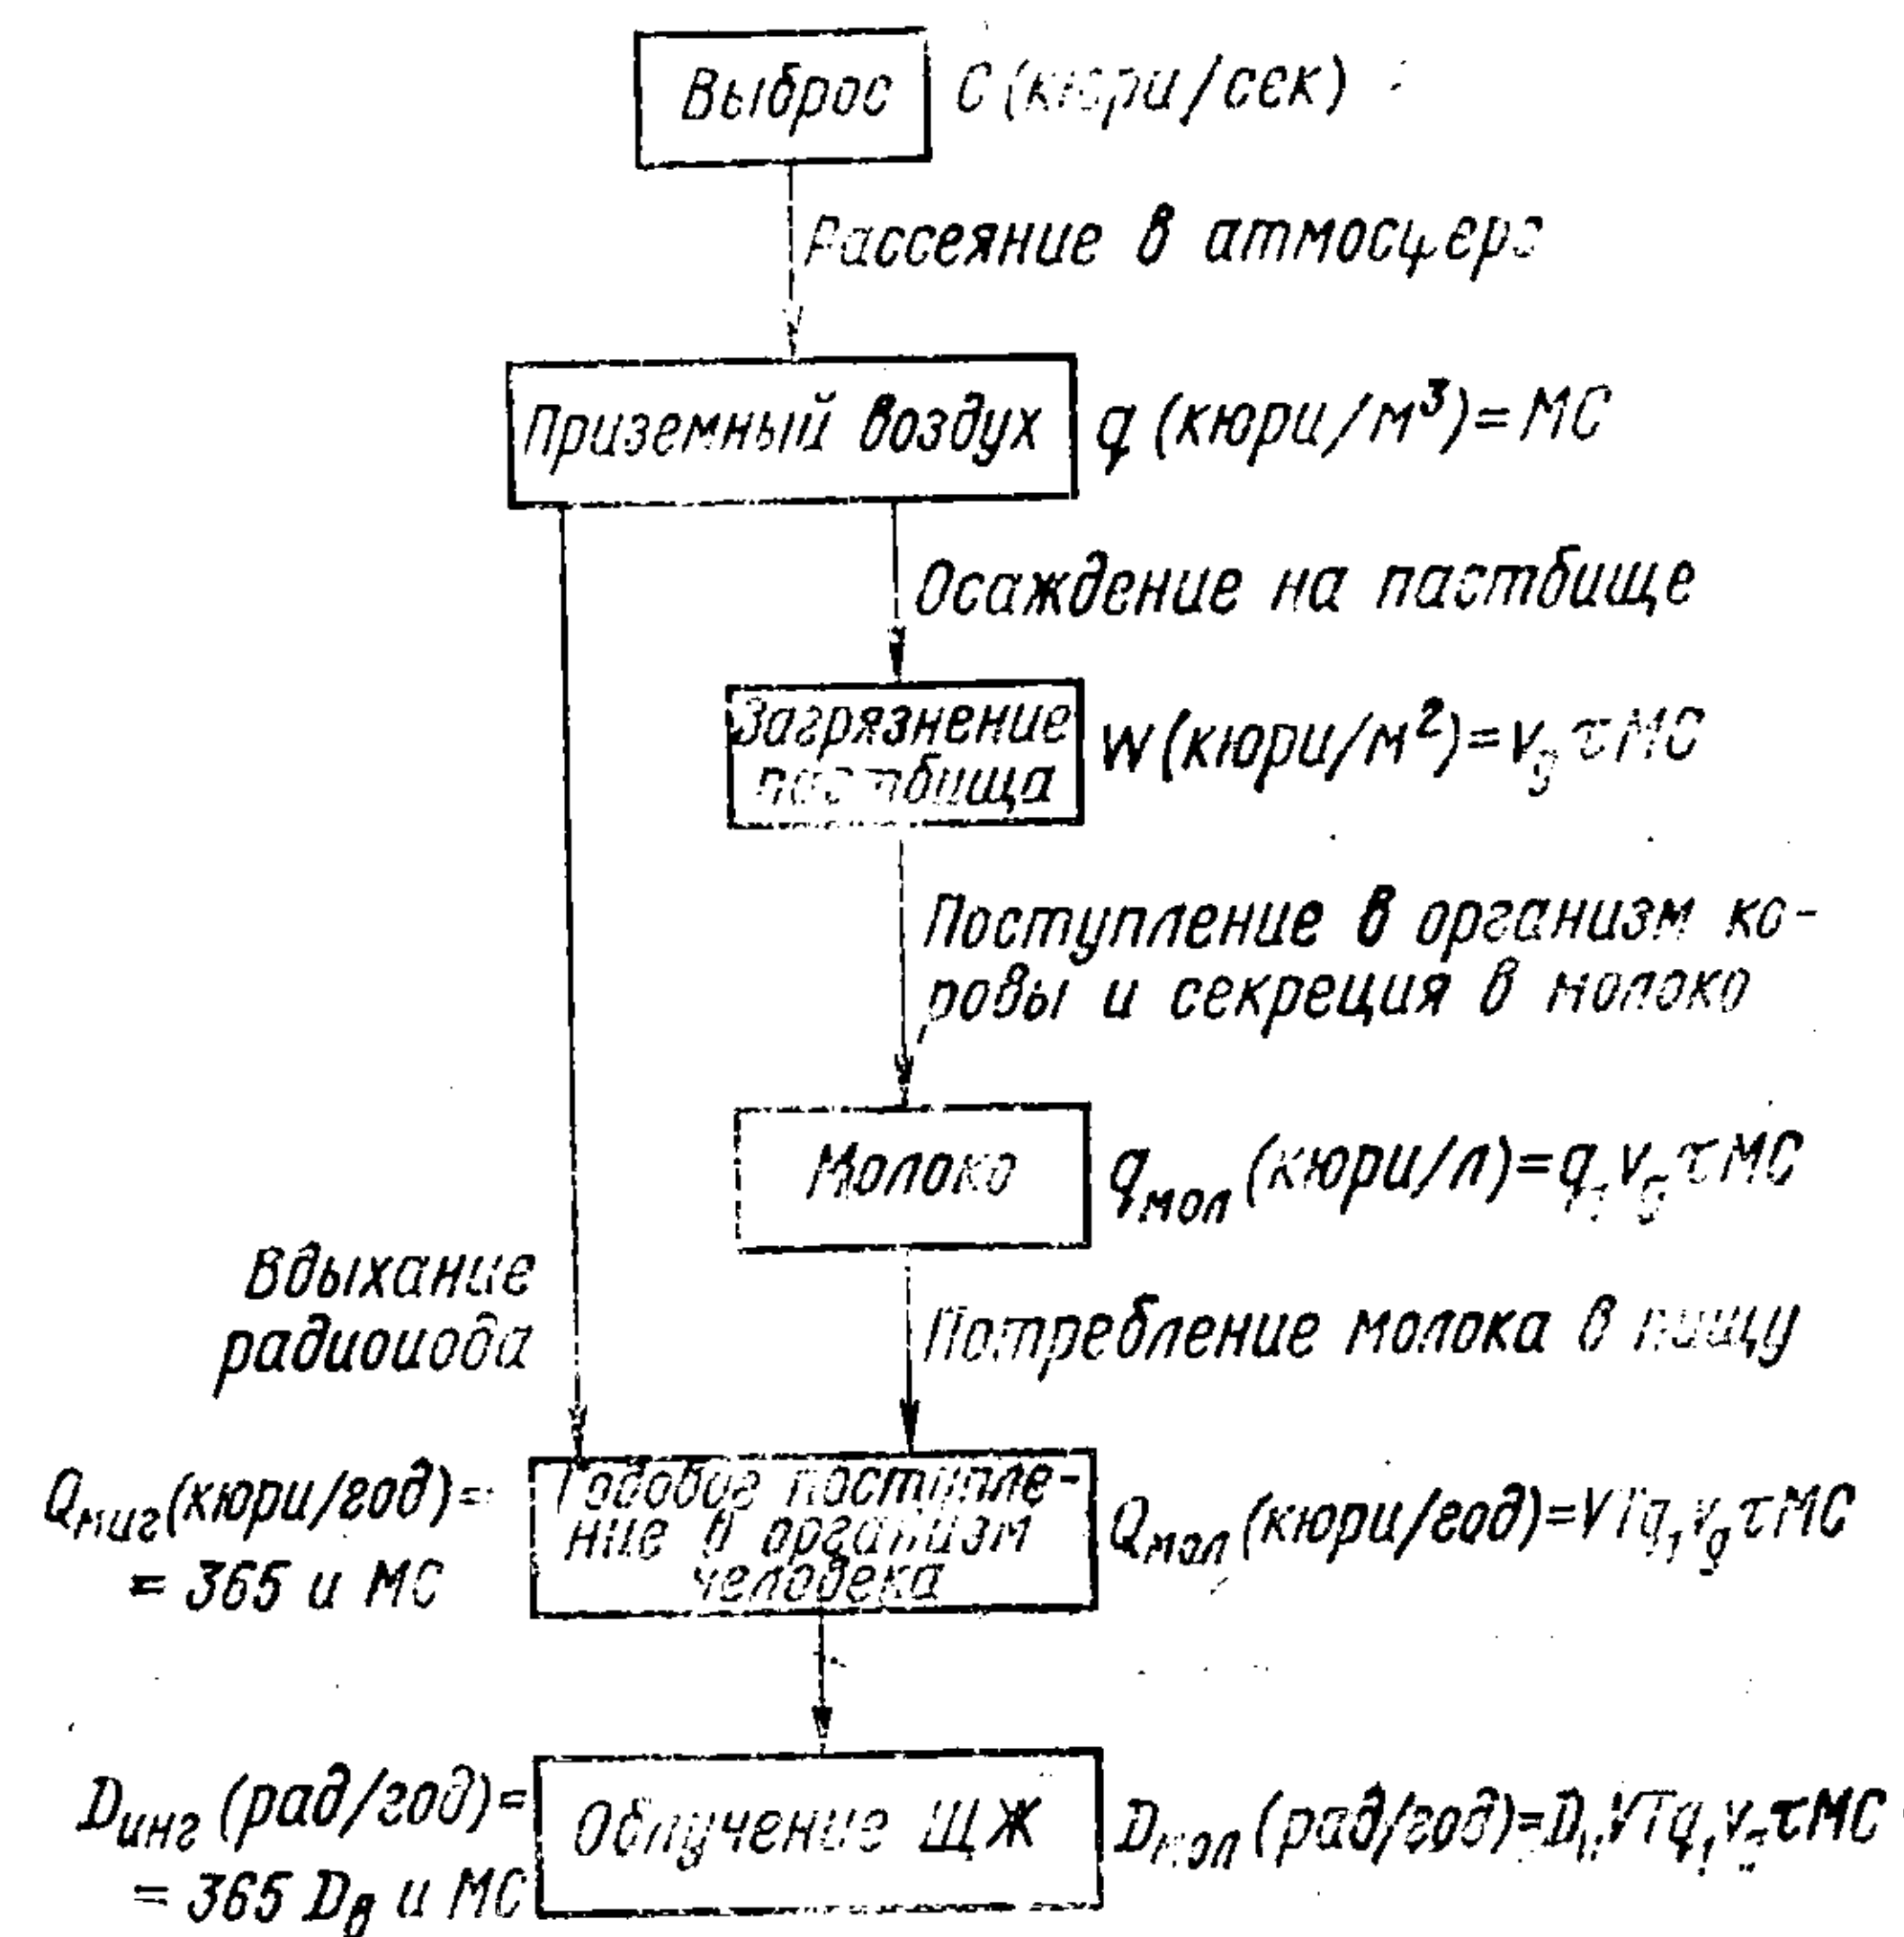 Выброс C (кюри/сек)
Рассеяние в атмосфере
Приземный воздух q (кюри/м³) = MC
Осаждение на пастбище
Загрязнение
пастбища
W (кюри/м²) = v_g τMC
Поступление в организм ко-
ровы и секреция в молоко
Молоко q_мол (кюри/л) = q₁ v_g τMC
Вдыхание
радиоиода
Потребление молока в пищу
Q_инг (кюри/год) =
= 365 и MC
Годовое поступле-
ние в организм
человека
Q_мол (кюри/год) = VTq₁ v_g τMC
D_инг (рад/год) =
= 365 D_в и MC
Облучение ЩЖ
D_мол (рад/год) = VTq₁ v_g τMC